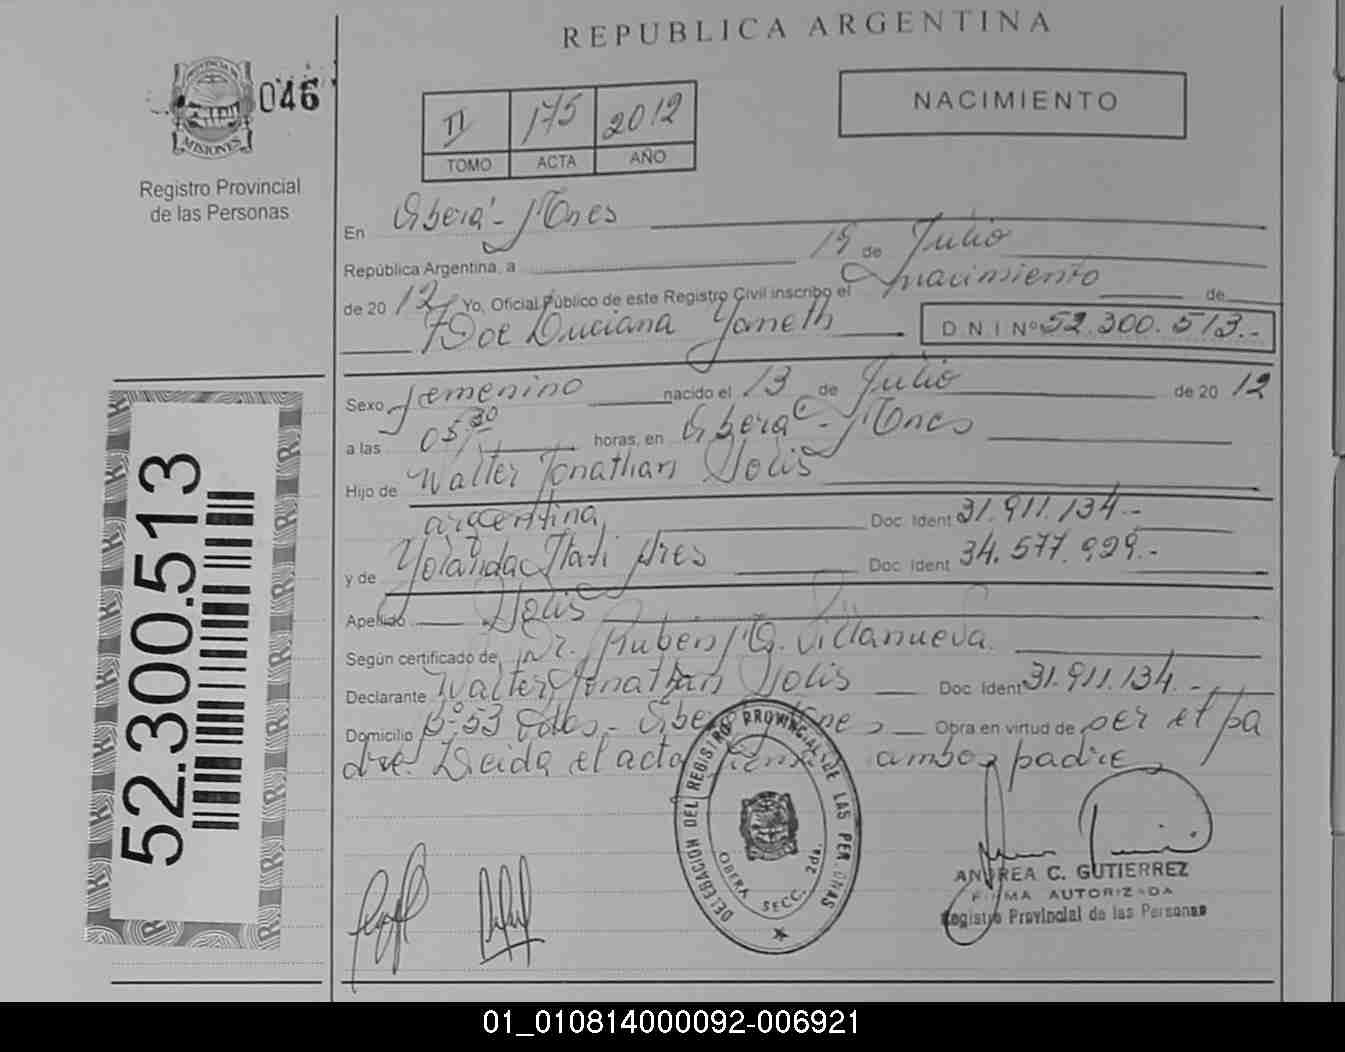 REPUBLICA ARGENTINA
PROVINCIA DE
MISIONES
046
Registro Provincial
de las Personas
II 175 2012
TOMO ACTA AÑO
NACIMIENTO
En Oberá - Mnes
República Argentina, a 19 de Julio
de 2012 Yo, Oficial Público de este Registro Civil inscribo el nacimiento de
Luciana Yaneth D.N.I Nº 52.300.513.-
Sexo femenino nacido el 13 de Julio de 2012
a las 05,30 horas, en Oberá - Mnes
Hijo de Walter Jonathan Solis
argentina Doc. Ident 31.911.134.-
y de Yolanda Itati Doc. Ident 34.577.929.-
Apellido Solis
Según certificado de Dr. Ruben G. Villanueva.
Declarante Walter Jonathan Solis Doc. Ident 31.911.134.-
Domicilio Bº 53 Obera Mnes Obra en virtud de ser el pa
dre. Leida el acta firman ambos padres
52.300.513
DELEGACION DEL REGISTRO PROVINCIAL DE LAS PERSONAS
OBERA SECC. 2da.
ANDREA C. GUTIERREZ
FIRMA AUTORIZADA
Registro Provincial de las Personas
01_010814000092-006921